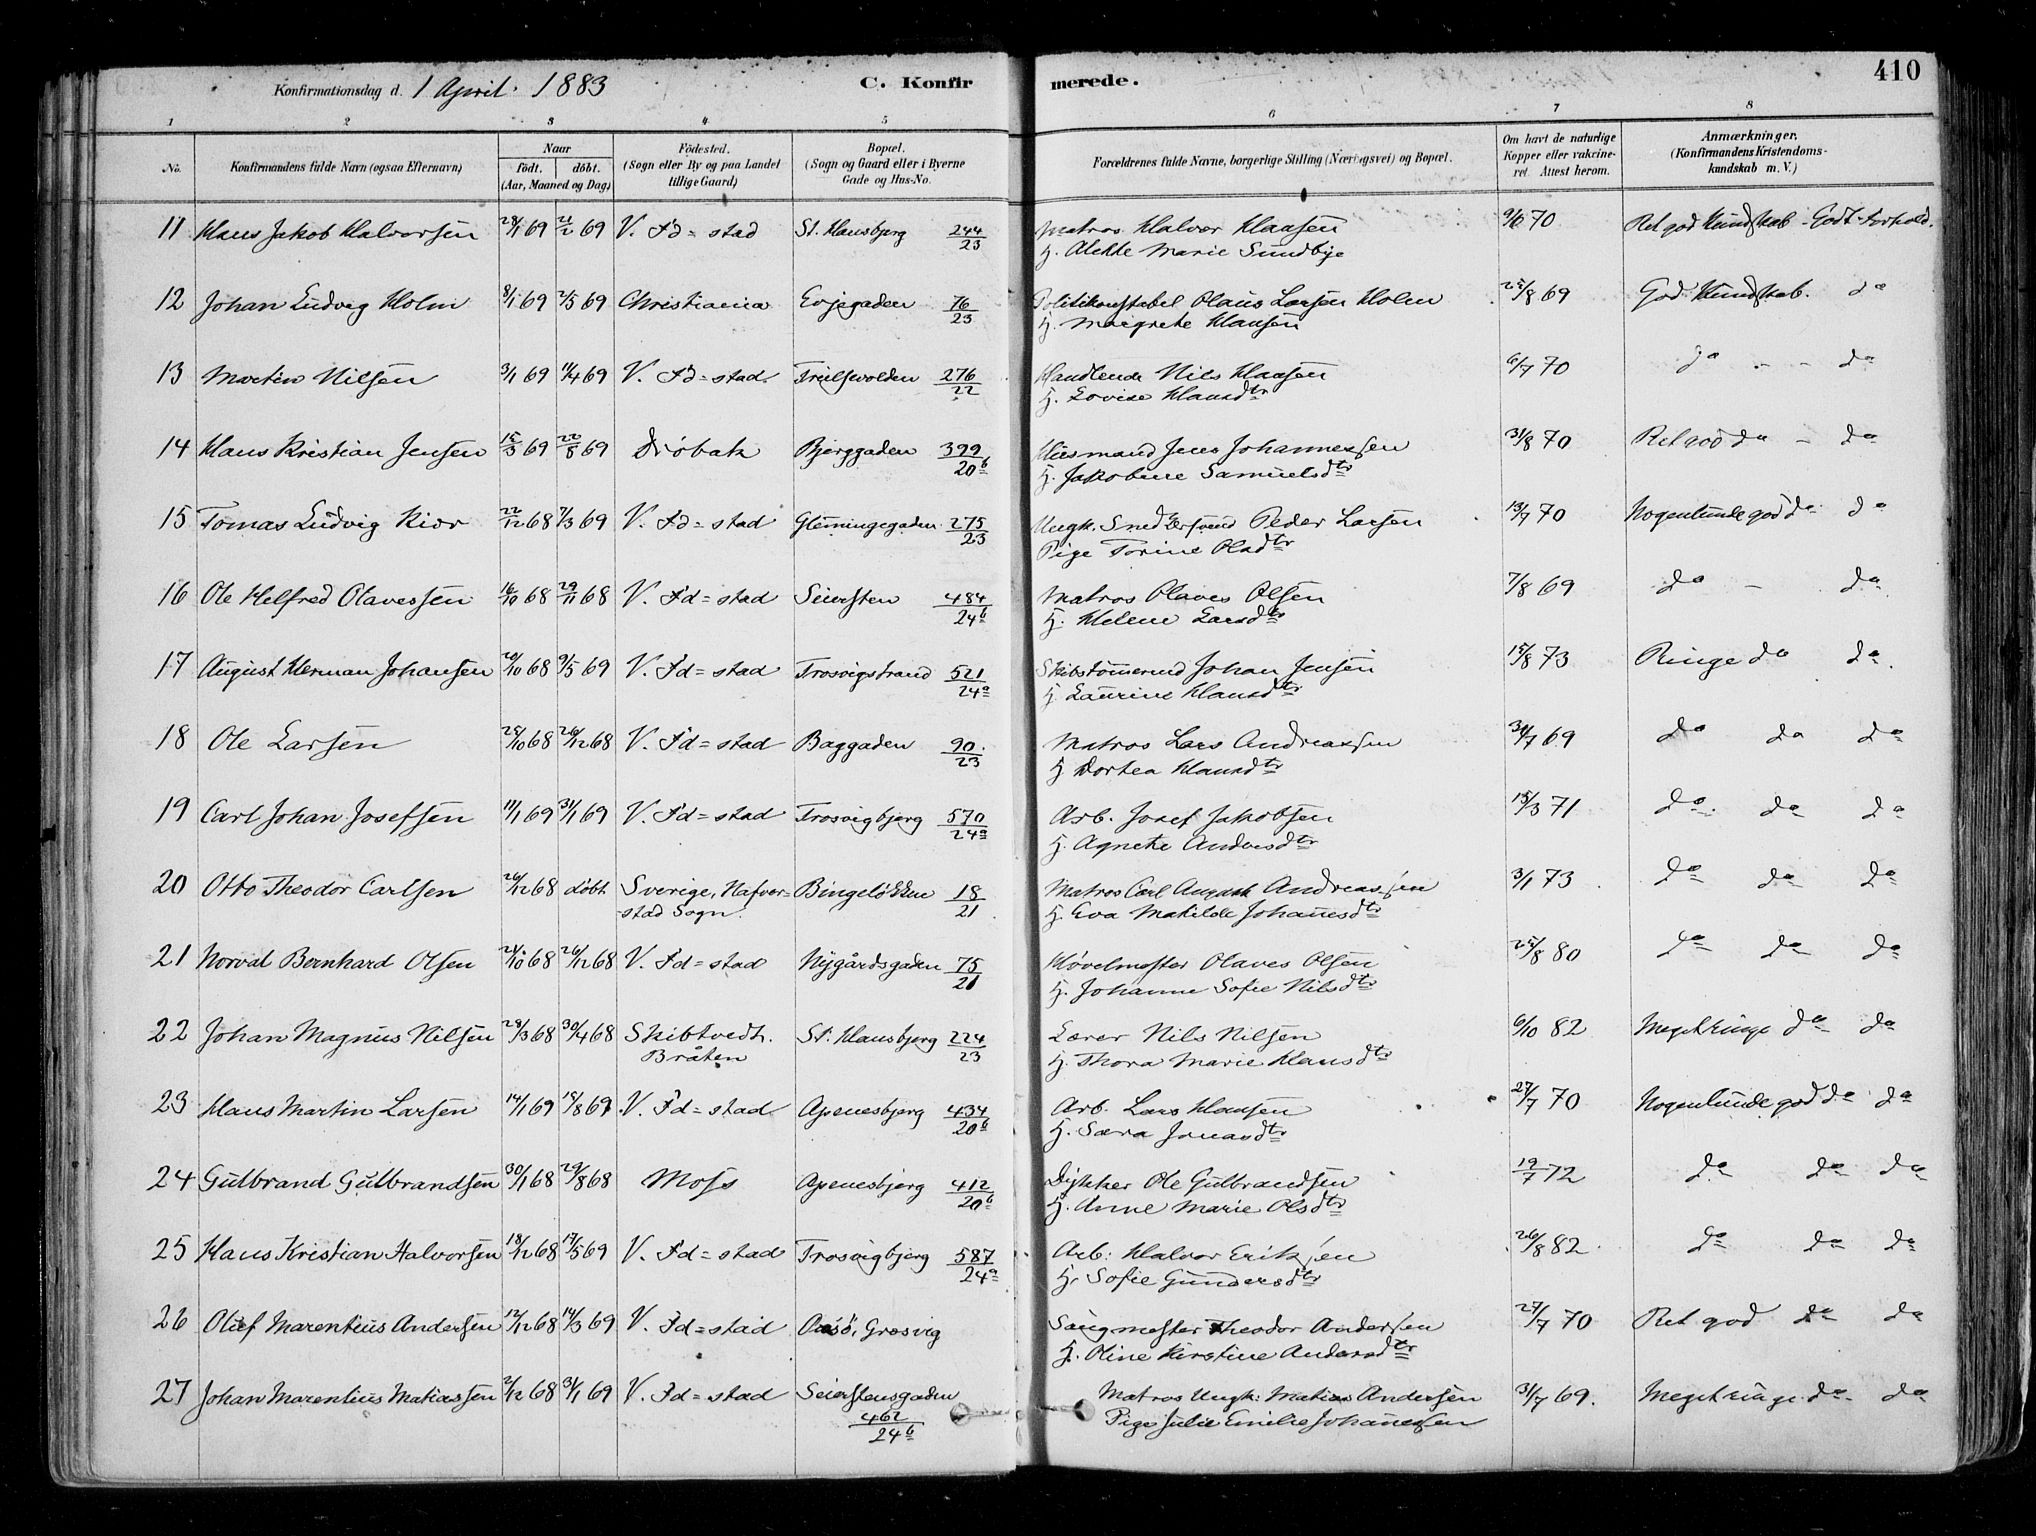 Konfirmationsdag d. 1 April. 1883
C. Konfirmerede.
410
1 2 3 4 5 6 7 8
No. Konfirmandens fulde Navn (ogsaa Efternavn) Naar født. døbt. (Aar, Maaned og Dag) Fødested. (Sogn eller By og paa Landet tillige Gaard) Bopæl. (Sogn og Gaard eller i Byerne Gade og Hus-No. Forældrenes fulde Navne, borgerlige Stilling (Næringsvei) og Bopæl. Om havt de naturlige Kopper eller vakcineret. Attest herom. Anmærkninger. (Konfirmandens Kristendomskundskab m. V.)
11 Hans Jakob Halvorsen 28/1 69 21/2 69 V. Fd=stad St. Hansbjerg 244/23 Matros Halvor Hansen 9/6 70 Ret god Kundskab - Godt Forhold.
H. Alette Marie Sundbye
12 Johan Ludvig Holm 8/1 69 2/5 69 Christiania Evjegaden 76/23 Politikonstabel Olaus Larsen Holm 25/8 69 God Kundskab. do
H. Margrete Hansen
13 Martin Nilsen 3/1 69 11/4 69 V. Fd=stad. 276/22 Handlende Nils Hansen 6/7 70 do - - do
H. Lovise Hansdtr
14 Hans Kristian Jensen 15/3 69 22/8 69 Drøbak Bjerggaden 399/20b Husmand Jens Johannessen 31/8 70 Ret god do - do
H. Jakobine Samuelsdtr
15 Tomas Ludvig Kior 22/12 68 7/3 69 V. Fd=stad Glemingegaden 275/23 Ungk. Snedkersvend Peder Larsen 13/7 70 Nogenlunde god do do
Pige Torine Olsdtr
16 Ole Helfred Olavessen 16/10 68 29/11 68 V. Fd=stad Seiersten 484/24b Matros Olaves Olsen 7/8 69 do - do
H. Helene Larsdtr
17 August Herman Johansen 20/10 68 9/5 69 V. Fd=stad Trosvigstrand 521/24a Skibstømmermd Johan Jensen 15/8 73 Ringe do do
H. Laurine Hansdtr
18 Ole Larsen 25/10 68 26/12 68 V. Fd=stad Baggaden 90/23 Matros Lars Andreassen 30/7 69 do do do
H. Dortea Hansdtr
19 Carl Johan Josefsen 11/1 69 31/1 69 V. Fd=stad Trosvigbjerg 570/24a Arb. Josef Jakobsen 15/3 71 do do do
H. Agnete Andersdtr
20 Otto Theodor Carlsen 26/12 68 døbt Sverige, Hafver- Bingeløkken 18/21 Matros Carl August Andreassen 3/1 73 do do do
stad Sogn. H. Eva Matilde Johannesdtr
21 Norval Bernhard Olsen 21/10 68 26/12 68 V. Fd=stad Nygårdsgaden 75/21 Høvelmester Olaves Olsen 25/8 80 do do do
H. Johanne Sofie Nilsdtr
22 Johan Magnus Nilsen 28/3 68 30/4 68 Skibtvedt. St. Hansbjerg 224/23 Lærer Nils Nilsen 6/10 82 Meget ringe do do
Bråten H. Thora Marie Hansdtr
23 Hans Martin Larsen 14/1 69 15/8 69 V. Fd=stad Apenesbjerg 434/20b Arb. Lars Hansen 27/7 70 Nogenlunde god do do
H. Sara Jonasdtr
24 Gulbrand Gulbrandsen 30/1 68 29/8 68 Moss Apenesbjerg 412/20b Dykker Ole Gulbrandsen 19/7 72 do do do
H. Anne Marie Olsdtr
25 Hans Kristian Halvorsen 18/12 68 17/5 69 V. Fd=stad Trosvigbjerg 587/24a Arb. Halvor Eriksen 26/8 82 do do do
H. Sofie Gundersdtr
26 Oluf Marentius Andersen 12/12 68 14/3 69 V. Fd=stad Onsø, Gresvig Saugmester Theodor Andersen 27/7 70 Ret god do do
H. Oline Kirstine Andersdtr
27 Johan Marentius Matiassen 2/12 68 31/1 69 V. Fd=stad Seierstensgaden Matros Ungk. Matias Andersen 31/7 69. Meget ringe do do
462/24b Pige Julie Emilie Johannessen